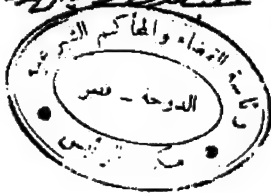 رئاسة القضاء والمحاكم الشرعية
الدوحة - قطر
مكتب الرئيس